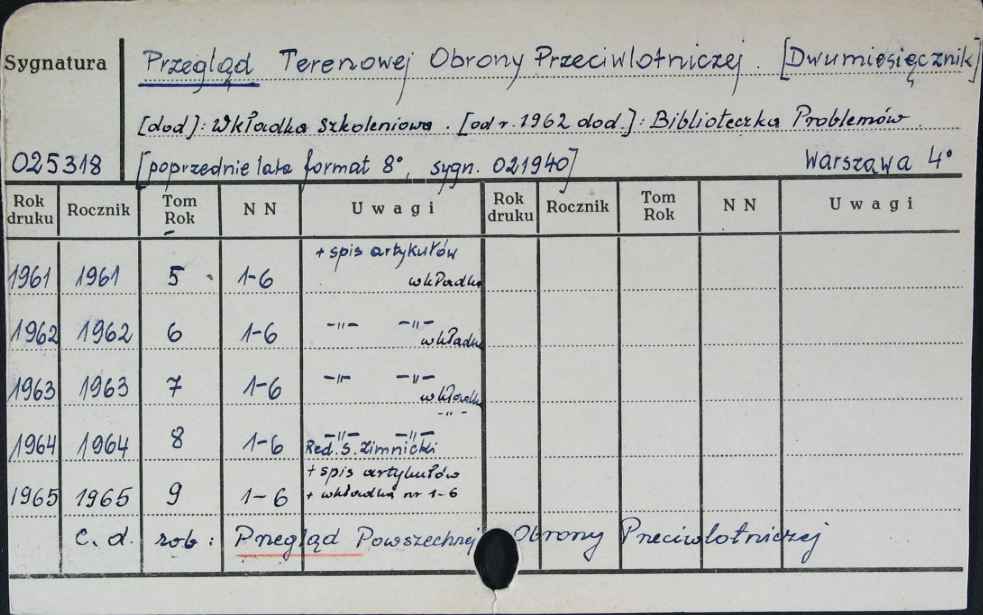 Sygnatura Przegląd Terenowej Obrony Przeciwlotniczej. [Dwumiesięcznik]
[dod]: Wkładka szkoleniowa. [od r. 1962 dod.]: Biblioteczka Problemów
025318 [poprzednie lata format 8°, sygn. 021940] Warszawa 4°
Rok druku Rocznik Tom Rok NN Uwagi Rok druku Rocznik Tom Rok NN Uwagi
+ spis artykułów
1961 1961 5 1-6 wkładka
1962 1962 6 1-6 -"- -"-
wkładka
1963 1963 7 1-6 -"- -"-
wkładka
-"-
1964 1964 8 1-6 -"- -"-
Red. S. Zimnicki
+ spis artykułów
1965 1965 9 1-6 + wkładka nr 1-6
c. d. rob: Przegląd Powszechnej Obrony Przeciwlotniczej